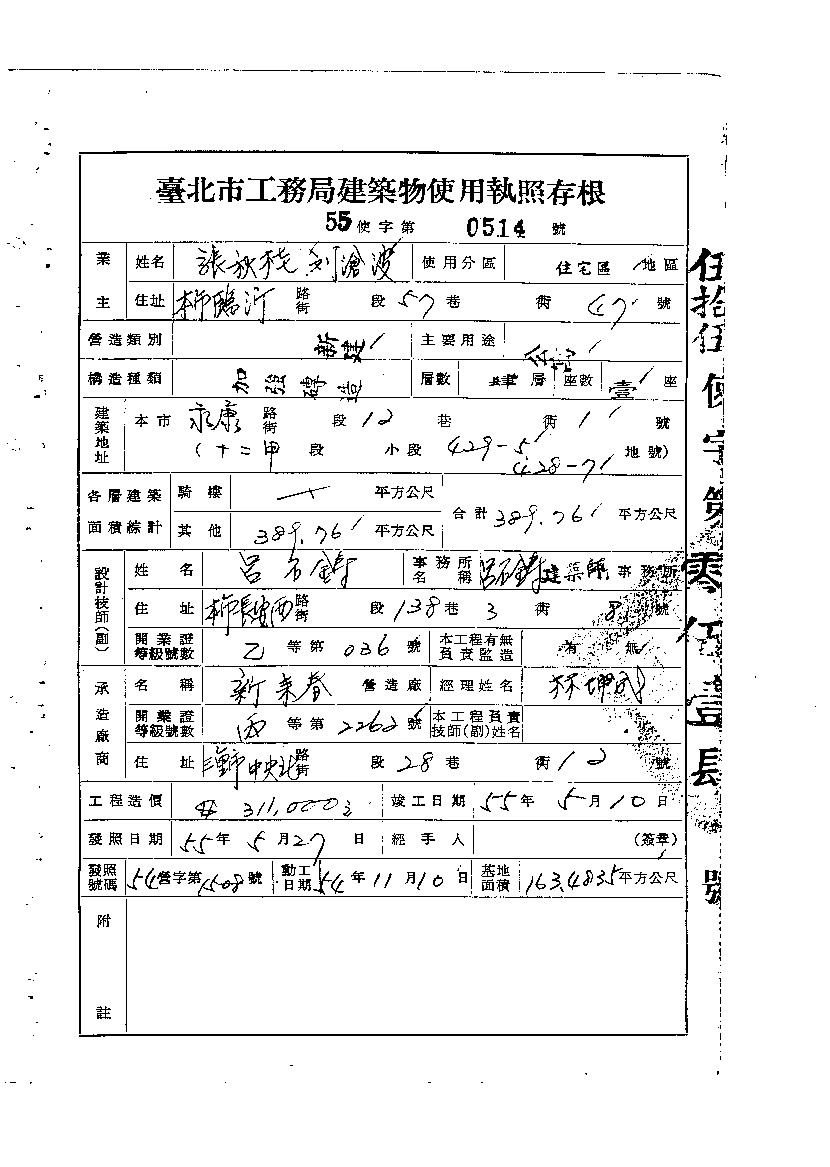 臺北市工務局建築物使用執照存根
55使字第 0514 號
業主 姓名 張秋桂 劉滄波 使用分區 住宅區 地區
住址 本市臨沂 路街 段 57 巷 衖 47 號
營造類別 新建 主要用途
構造種類 加強磚造 層數 層 座數 壹 座
建築地址 本市 永康 路街 段 12 巷 衖 1 號
(十二甲 段 小段 429-5 428-7 地號)
各層建築面積綜計 騎樓 平方公尺 合計 389.76 平方公尺
其他 389.76 平方公尺
設計技師(副) 姓名 呂石鑄 事務所名稱 呂石鑄建築師 事務所
住址 本市長安西 路街 段 138 巷 3 衖 8 號
開業證等級號數 乙 等第 036 號 本工程有無負責監造 有 無
承造廠商 名稱 新來春 營造廠 經理姓名 林坤成
開業證等級號數 丙 等第 2262 號 本工程負責技師(副)姓名
住址 三重市中央北 路街 段 28 巷 衖 12 號
工程造價 311,000 竣工日期 55年 5月10日
發照日期 55年 5月27日 經手人 (簽章)
發照號碼 54營字第1508號 動工日期 54年11月10日 基地面積 163.4835平方公尺
附註
伍拾伍使字第零伍壹肆號